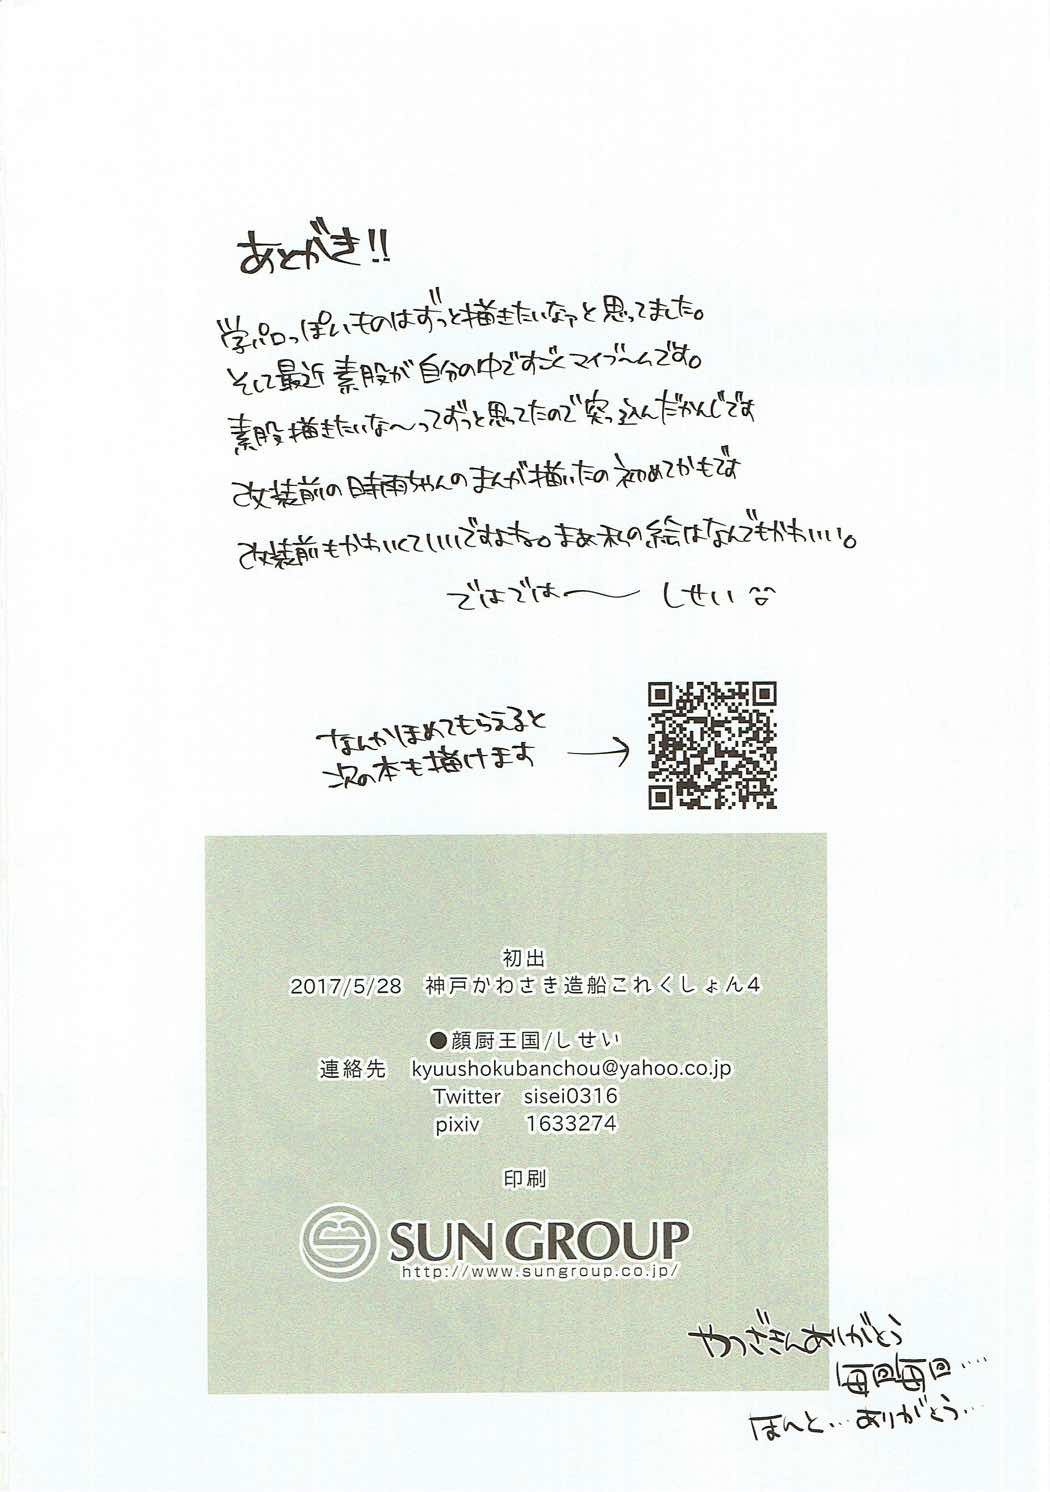 あとがき!!
学パロっぽいものはずっと描きたいなァと思ってました。
そして最近素股が自分の中ですごくマイブームです。
素股描きたいな〜ってずっと思ってたので突っ込んだかんじです
改装前の時雨ちゃんのまんが描いたの初めてかもです
改装前もかわいくていいですよね。まあ私の絵はなんでもかわいい。
ではでは〜 しせい
なんかほめてもらえると
次の本も描けます
初出
2017/5/28 神戸かわさき造船これくしょん4
●顔厨王国/しせい
連絡先 kyuushokubanchou@yahoo.co.jp
Twitter sisei0316
pixiv 1633274
印刷
SUN GROUP
http://www.sungroup.co.jp/
やつざきんありがとう
毎回毎回....
ほんと...ありがとう...